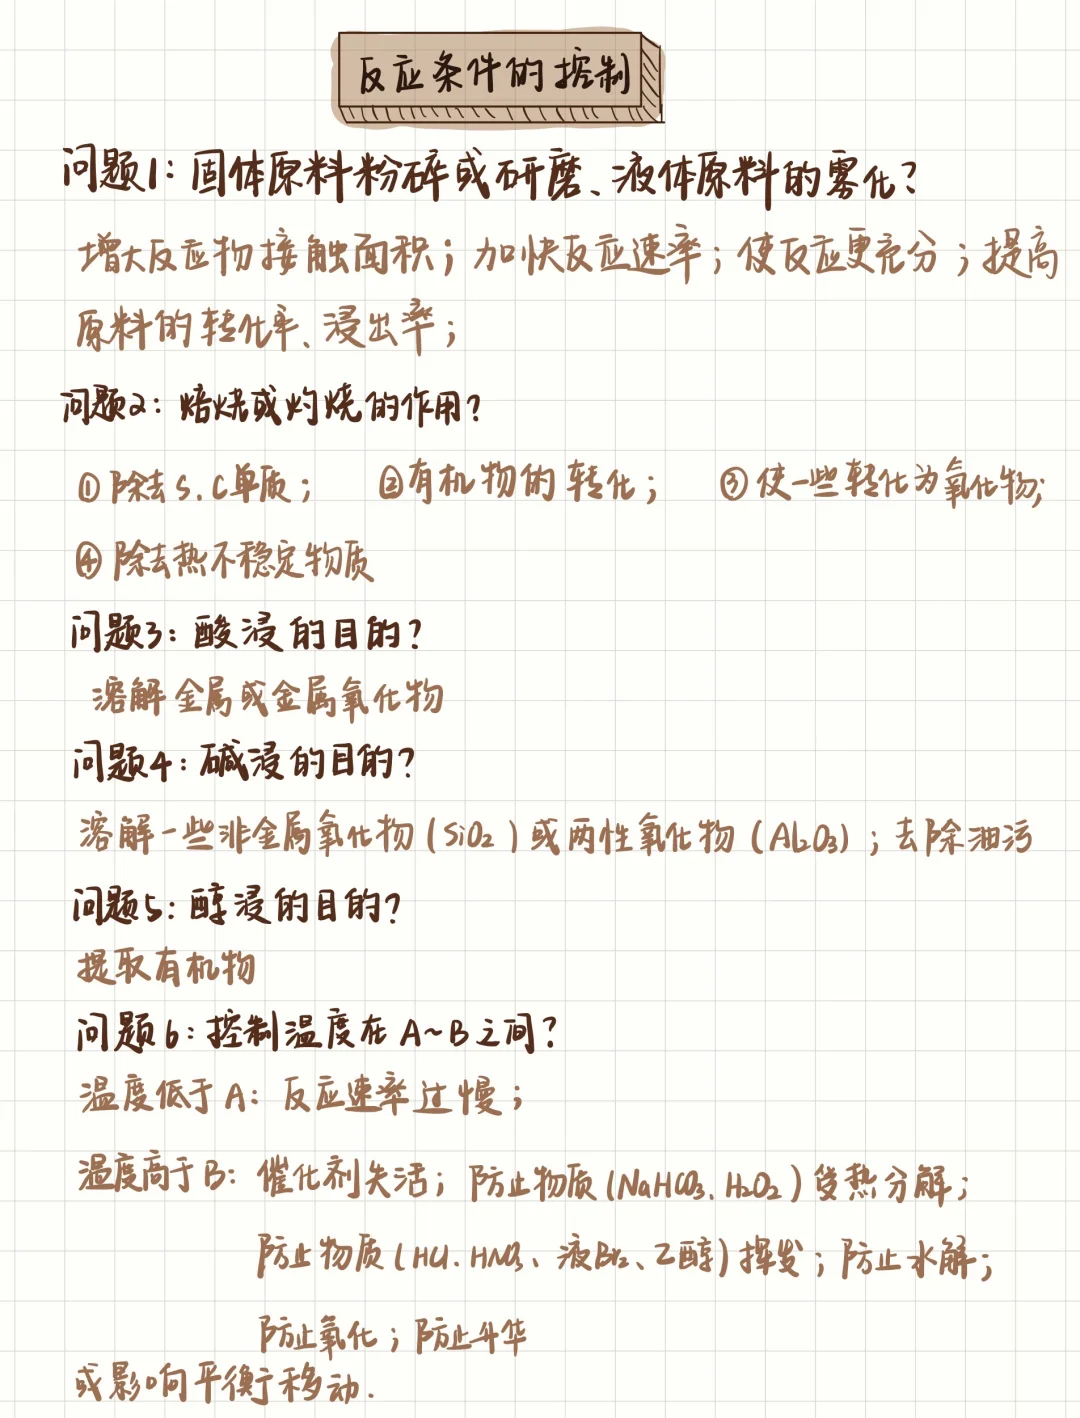 反应条件的控制
问题1：固体原料粉碎或研磨、液体原料的雾化？
增大反应物接触面积；加快反应速率；使反应更充分；提高
原料的转化率、浸出率；
问题2：焙烧或灼烧的作用？
①除去S、C单质； ②有机物的转化； ③使一些转化为氧化物；
④除去热不稳定物质
问题3：酸浸的目的？
溶解金属或金属氧化物
问题4：碱浸的目的？
溶解一些非金属氧化物（SiO₂）或两性氧化物（Al₂O₃）；去除油污
问题5：醇浸的目的？
提取有机物
问题6：控制温度在A~B之间？
温度低于A：反应速率过慢；
温度高于B：催化剂失活；防止物质（NaHCO₃、H₂O₂）受热分解；
防止物质（HCl、HNO₃、液Br₂、乙醇）挥发；防止水解；
防止氧化；防止升华
或影响平衡移动．